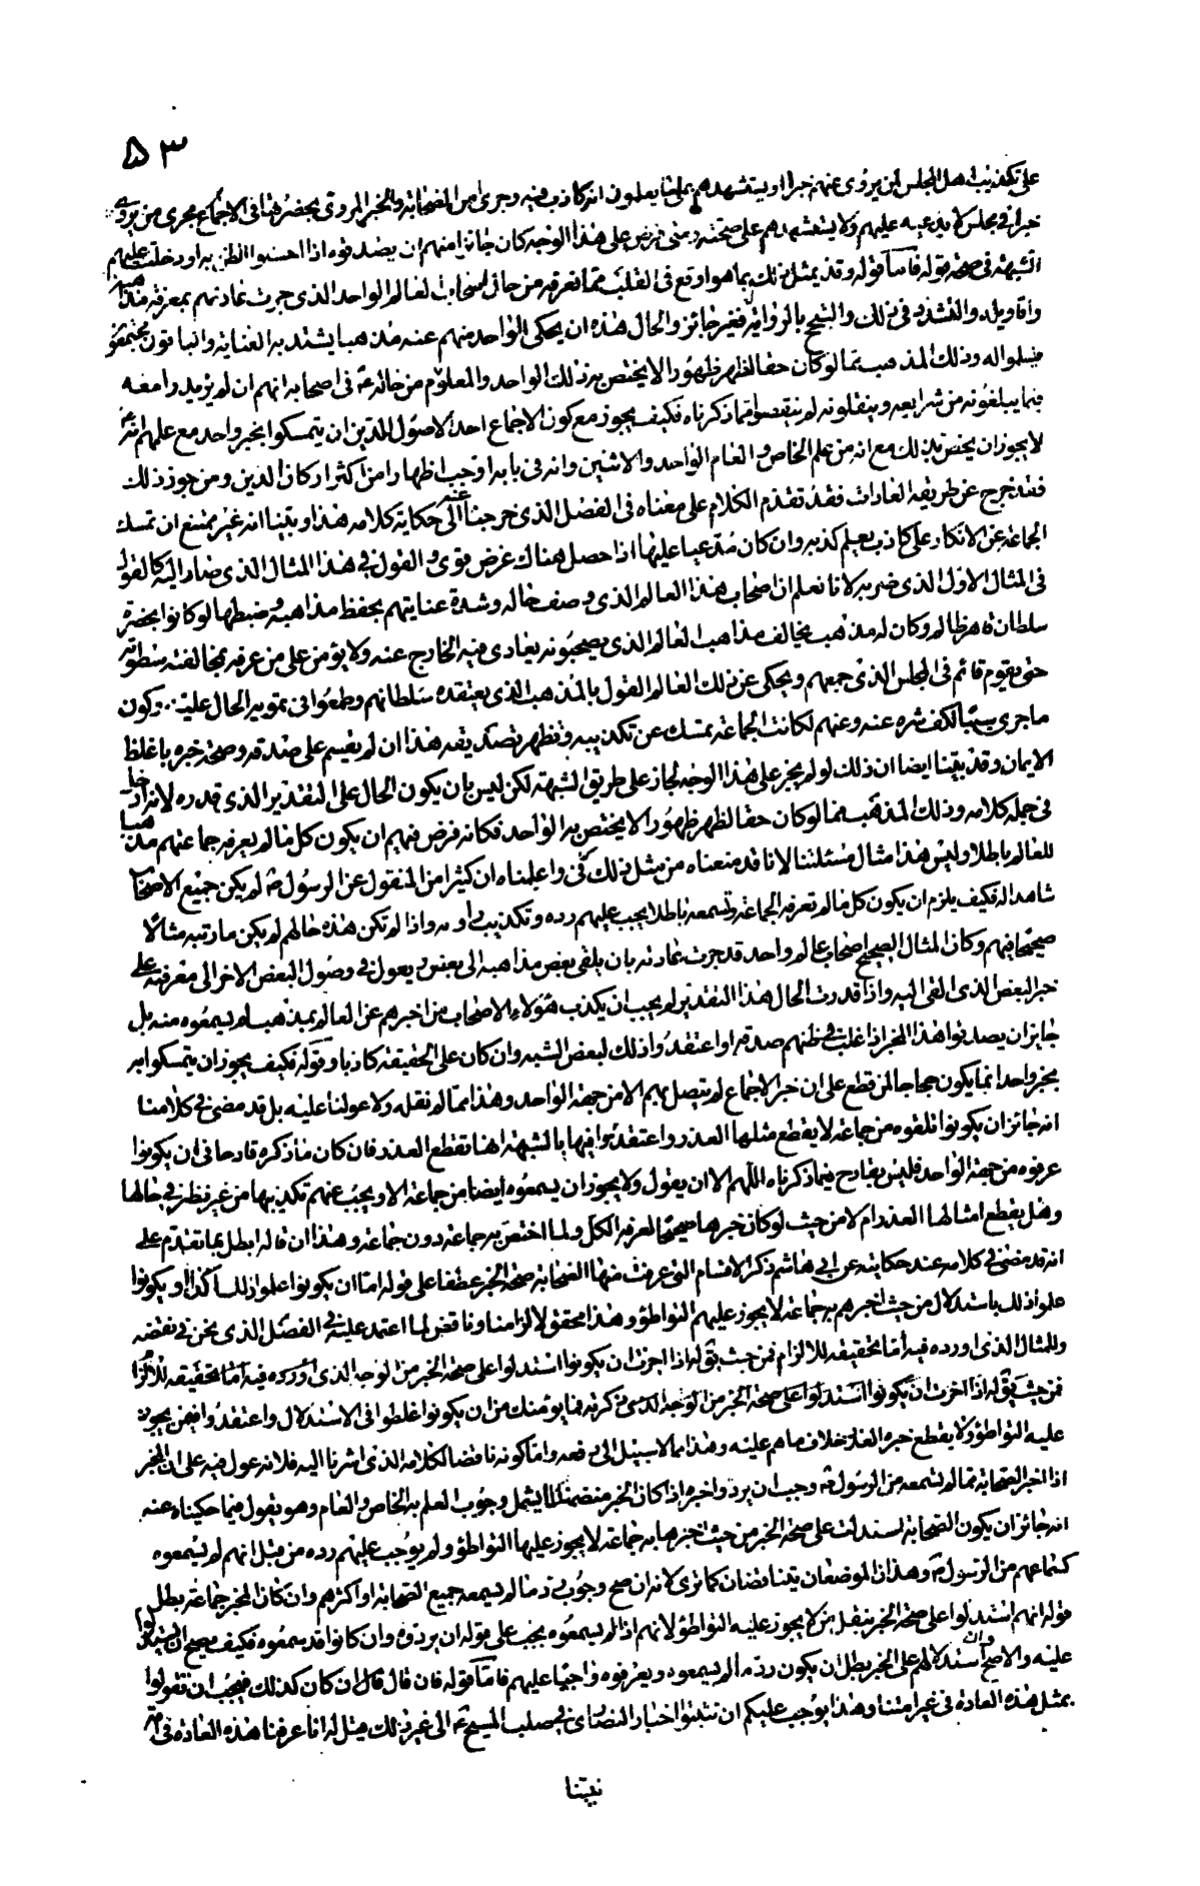 ٥٣
على تكذيب اهل المجلس لمن يروى عنهم خبرا او يستشهدهم بما يعلمون انه كاذب فيه وجرى امر الصحابة والخبر المروى بحضرتها فى الاجماع مجرى من يروى
خبرا فى مجلس لا يدعيه عليهم ولا يستشهدهم على صحته ومتى فرض على هذا الوجه كان جائزا منهم ان يصدقوه اذا احسنوا الظن به او دخلت عليهم
الشبهة فى صحة قوله فاما قوله وقد يمثل ذلك بما هو اوقع فى القلب مما نعرفه من حال اصحاب العالم الواحد الذى جرت عادتهم بمعرفة مذاهبه
واقاويله والتشدد فى ذلك والتبجح بالرواية فغير جائز والحال هذه ان يحكى الواحد منهم عنه مذهبا يشتد به العناية والباقون مجتمعون
فيسلموا له وذلك المذهب مما لو كان حقا لظهر ظهورا لا يختص به ذلك الواحد والمعلوم من حاله ع فى اصحابه انهم ان لم يزيدوا معه
فيما يبلغونه من شرايعه وينقلونه لم ينقصوا مما ذكرناه فكيف يجوز مع كون الاجماع احد الاصول للدين ان يتمسكوا بخبر واحد مع علمهم انه
لا يجوز ان يخص بذلك مع انه من علم الخاص والعام الواحد والاثنين وانه فى بابه اوجب اظهارا من اكثر اركان الدين ومن جوز ذلك
فقد خرج عن طريقة العادات فقد تقدم الكلام على معناه فى الفصل الذى خرجنا عنه الى حكاية كلامه هذا وبينا انه غير ممتنع ان تمسك
الجماعة عن الانكار على كاذب يعلم كذبه وان كان مدعيا عليها اذا حصل هناك غرض قوى والقول فى هذا المثال الذى صار اليه كالقول
فى المثال الاول الذى ضربه لانا نعلم ان اصحاب هذا العالم الذى وصف حاله وشدة عنايتهم بحفظ مذاهبه وضبطها لو كانوا بحضرة
سلطان قاهر ظالم وكان له مذهب يخالف مذاهب العالم الذى يصحبونه يعادى فيه الخارج عنه ولا يؤمن على من عرفه بمخالفته سطواته
حتى يقوم قائم فى المجلس الذى جمعهم ويحكى عن ذلك العالم القول بالمذهب الذى يعتقده سلطانهم وطمعوا فى تمويه الحال عليه وكون
ما جرى سببا لكف شره عنه وعنهم لكانت الجماعة تمسك عن تكذيبه وتظهر تصديقه هذا ان لم يقسم على صدقه وصحة خبره باغلظ
الايمان وقد بينا ايضا ان ذلك لو لم يجز على هذا الوجه لجاز على طريق الشبهة لكن ليس بان يكون الحال على التقدير الذى قدره لانه ادخل
فى جملة كلامه وذلك المذهب مما لو كان حقا لظهر ظهورا لا يختص به الواحد فكانه فرض فيهم ان يكون كل ما لم يعرفه جماعتهم مذهبا
للعالم باطلا وليس هذا مثال مسئلتنا لانا قد منعناه من مثل ذلك واعلمناه ان كثيرا من المنقول عن الرسول ص لم يكن جميع الاصحاب
شاهدا له فكيف يلزم ان يكون كل ما لم تعرفه الجماعة وتسمعه باطلا يجب عليهم رده وتكذيب راويه واذا لم تكن هذه حالهم لم يكن ما رتبه مثالا
صحيحا فيهم وكان المثال الصحيح اصحاب عالم واحد قد جرت عادته بان يلقى بعض مذاهبه الى بعض ويعول فى وصول البعض الاخر الى معرفته على
خبر البعض الذى القى اليه واذا قدرت الحال هذا التقدير لم يجب ان يكذب هؤلاء الاصحاب من اخبرهم عن العالم بمذهب لم يسمعوه منه بل
جايز ان يصدقوا هذا المخبر اذا غلب فى ظنهم صدقه او اعتقدوا ذلك لبعض الشبه وان كان على الحقيقة كاذبا وقوله فكيف يجوز ان يتمسكوا به
بخبر واحد انما يكون حجاجا لمن قطع على ان خبر الاجماع لم يتصل بهم الا من جهة الواحد وهذا مما لم نقله ولا عولنا عليه بل قد مضى فى كلامنا
انه جائز ان يكونوا تلقوه من جماعة لا يقطع مثلها العذر واعتقدوا فيها بالشبهة انها تقطع العذر فان كان ما ذكره قادحا فى ان يكونوا
عرفوه من جهة الواحد فليس بقادح فيما ذكرناه اللهم الا ان يقول ولا يجوز ان يسمعوه ايضا من جماعة الا ويجب عنهم تكذيبها من غير نظر فى حالها
وهل يقطع امثالها العذر ام لا من حيث لو كان خبرها صحيحا لعرفه الكل ولما اختص به جماعة دون جماعة وهذا ان قاله ابطل بما تقدم على
انه قد مضى فى كلامه عند حكايته عن ابى هاشم ذكر الاقسام التى عرفت منها الصحابة صحة الخبر عطفا على قوله اما ان يكونوا علموا ذلك كذا او يكونوا
علموا ذلك باستدلال من حيث اخبرهم به جماعة لا يجوز عليهم التواطؤ وهذا محقق لالزامنا وناقض لما اعتمد عليه فى الفصل الذى نحن فى نقضه
وللمثال الذى اورده فيه اما تحقيقه للالزام فمن حيث يق له اذا اجزت ان يكونوا استدلوا على صحة الخبر من الوجه الذى اورده فيه اما تحقيقه للالزام
فمن حيث يق له اذا اجزت ان يكونوا استدلوا على صحة الخبر من الوجه الذى ذكرته فما يؤمنك من ان يكونوا غلطوا فى الاستدلال واعتقدوا فيمن يجوز
عليه التواطؤ ولا يقطع خبره العذر خلاف ما هم عليه وهذا مما لا سبيل الى دفعه واما كونه ناقضا لكلامه الذى اشرنا اليه فلانه عول فيه على ان المخبر
اذا اخبر الصحابة بما لم تسمعه من الرسول ص وجب ان يردوا خبره اذا كان الخبر متضمنا لما يشمل وجوب العلم به الخاص والعام وهو يقول فيما حكيناه عنه
انه جائز ان يكون الصحابة استدلت على صحة الخبر من حيث اخبرها به جماعة لا يجوز عليها التواطؤ ولم يوجب عليهم رده من حيث انهم لم يسمعوه
كسماعهم من الرسول ص وهذان الموضعان يتناقضان كما ترى لانه ان صح وجوب رد ما لم يسمعه جميع الصحابة او اكثرهم وان كان المخبر جماعة بطل
قوله انهم استدلوا على صحة الخبر بنقل من لا يجوز عليه التواطؤ لانهم اذا لم يسمعوه يجب على قوله ان يردوه وان كانوا قد سمعوه فكيف يصح ان يستدلوا
عليه والا صح استدلالهم على الخبر بطل ان يكون رد ما لم يسمعوه ويعرفوه واجبا عليهم فاما قوله فان قال قائل ان كان كذلك فيجب ان تقولوا
بمثل هذه العادة فى غير امتنا وهذا يوجب عليكم ان تثبتوا اخبار النصارى فى صلب المسيح ع الى غير ذلك قيل له انا عرفنا هذه العادة فى امة
نبينا